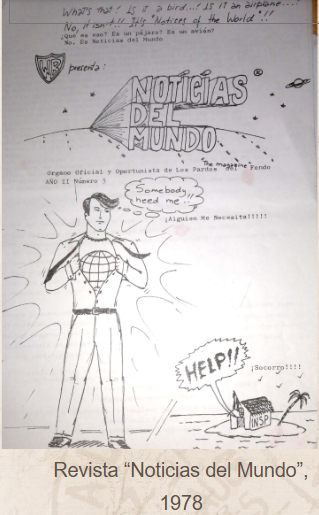 What's that! Is it a bird...? Is it an airplane...?
No, it isn't!! It's "Notices of the World"!!
¿Qué es eso? Es un pájaro? Es un avión?
No, Es Noticias del Mundo
WB
presenta:
NOTICIAS ®
DEL
MUNDO
"The magazine"
Organo Oficial y Oportunista de Los Pardos del Fondo
AÑO II Número 3
Somebody
need me...!!
¡Alguien Me Necesita!!!!!
HELP!!
¡Socorro!!!!
INSP
Revista “Noticias del Mundo”,
1978